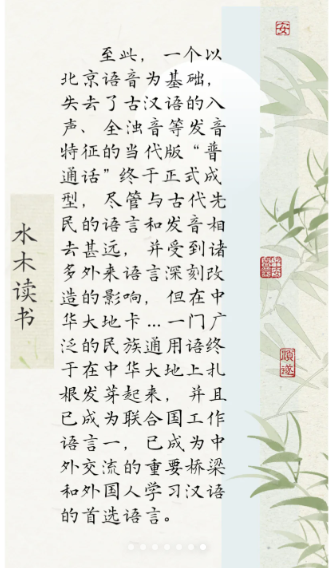 至此，一个以
北京语音为基础，
失去了古汉语的入
声、全浊音等发音
特征的当代版“普
通话”终于正式成
型，尽管与古代先
民的语言和发音相
去甚远，并受到诸
多外来语言深刻改
造的影响，但在中
华大地卡…一门广
泛的民族通用语终
于在中华大地上扎
根发芽起来，并且
已成为联合国工作
语言一，已成为中
外交流的重要桥梁
和外国人学习汉语
的首选语言。
水木读书